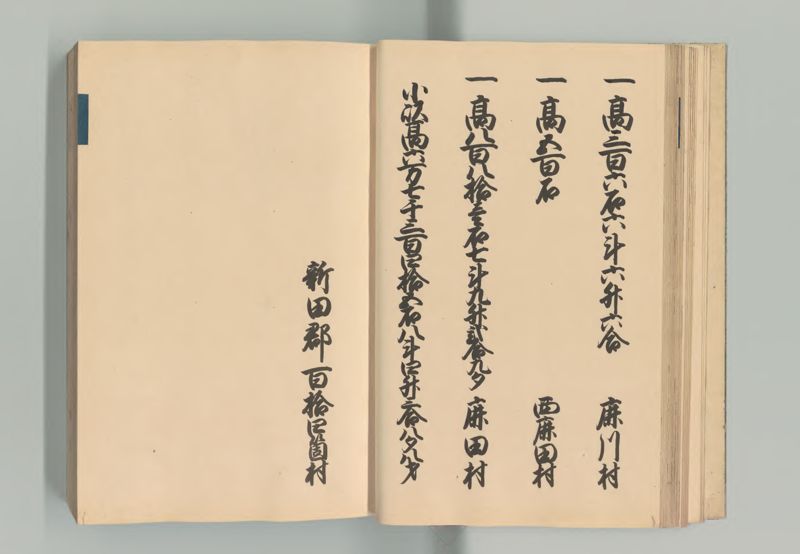 一高三百六石六斗六升六合 麻川村
一高五百石 西麻田村
一高八百八拾壱石七斗九升弐合九夕 麻田村
小以高六万七千三百四拾五石八斗四升三合八夕八才
新田郡百拾四箇村